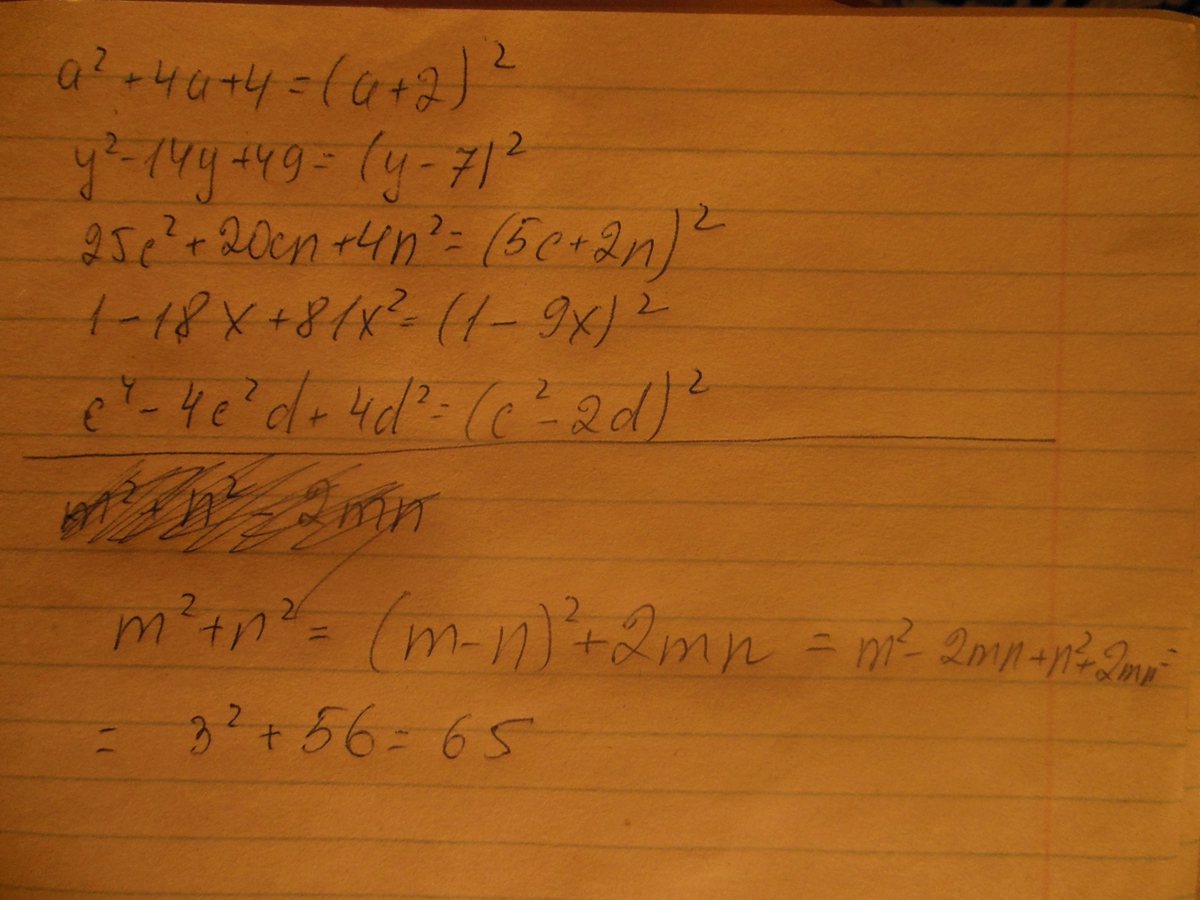 a² + 4a + 4 = (a + 2)²
y² - 14y + 49 = (y - 7)²
25c² + 20cn + 4n² = (5c + 2n)²
1 - 18x + 81x² = (1 - 9x)²
c⁴ - 4c²d + 4d² = (c² - 2d)²
m² + n² - 2mn
m² + n² = (m - n)² + 2mn = m² - 2mn + n² + 2mn =
= 3² + 56 = 65